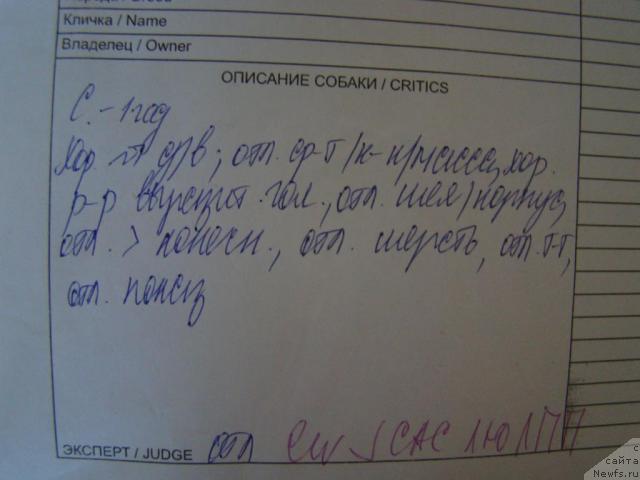 Кличка / Name
Владелец / Owner
ОПИСАНИЕ СОБАКИ / CRITICS
С. – 1 год
хор. д/в; отл. ср-т/к-к/масса, хор.
р-р выразит. гол., отл. шея/корпус,
отл. > конечн., отл. шерсть, отл. т-т,
отл. показ
ЭКСПЕРТ / JUDGE отл CW JCAC ЛЮ ЛПП
с
сайта
Newfs.ru